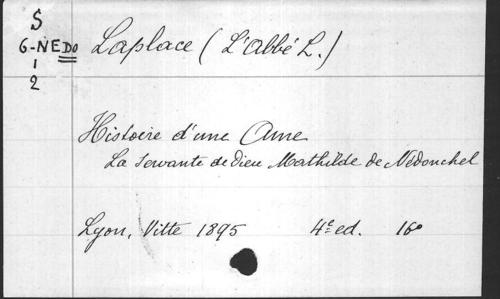 S
G-NEDO
1
2
Laplace (L'Abbé L.)
Histoire d'une Ame
La servante de Dieu Mathilde de Nédonchel
Lyon, Vitte 1895 4e ed. 16o